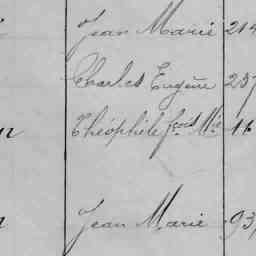 Jean Marie 214
Charles Eugène 237
Théophile fçois Mie 16
Jean Marie 93